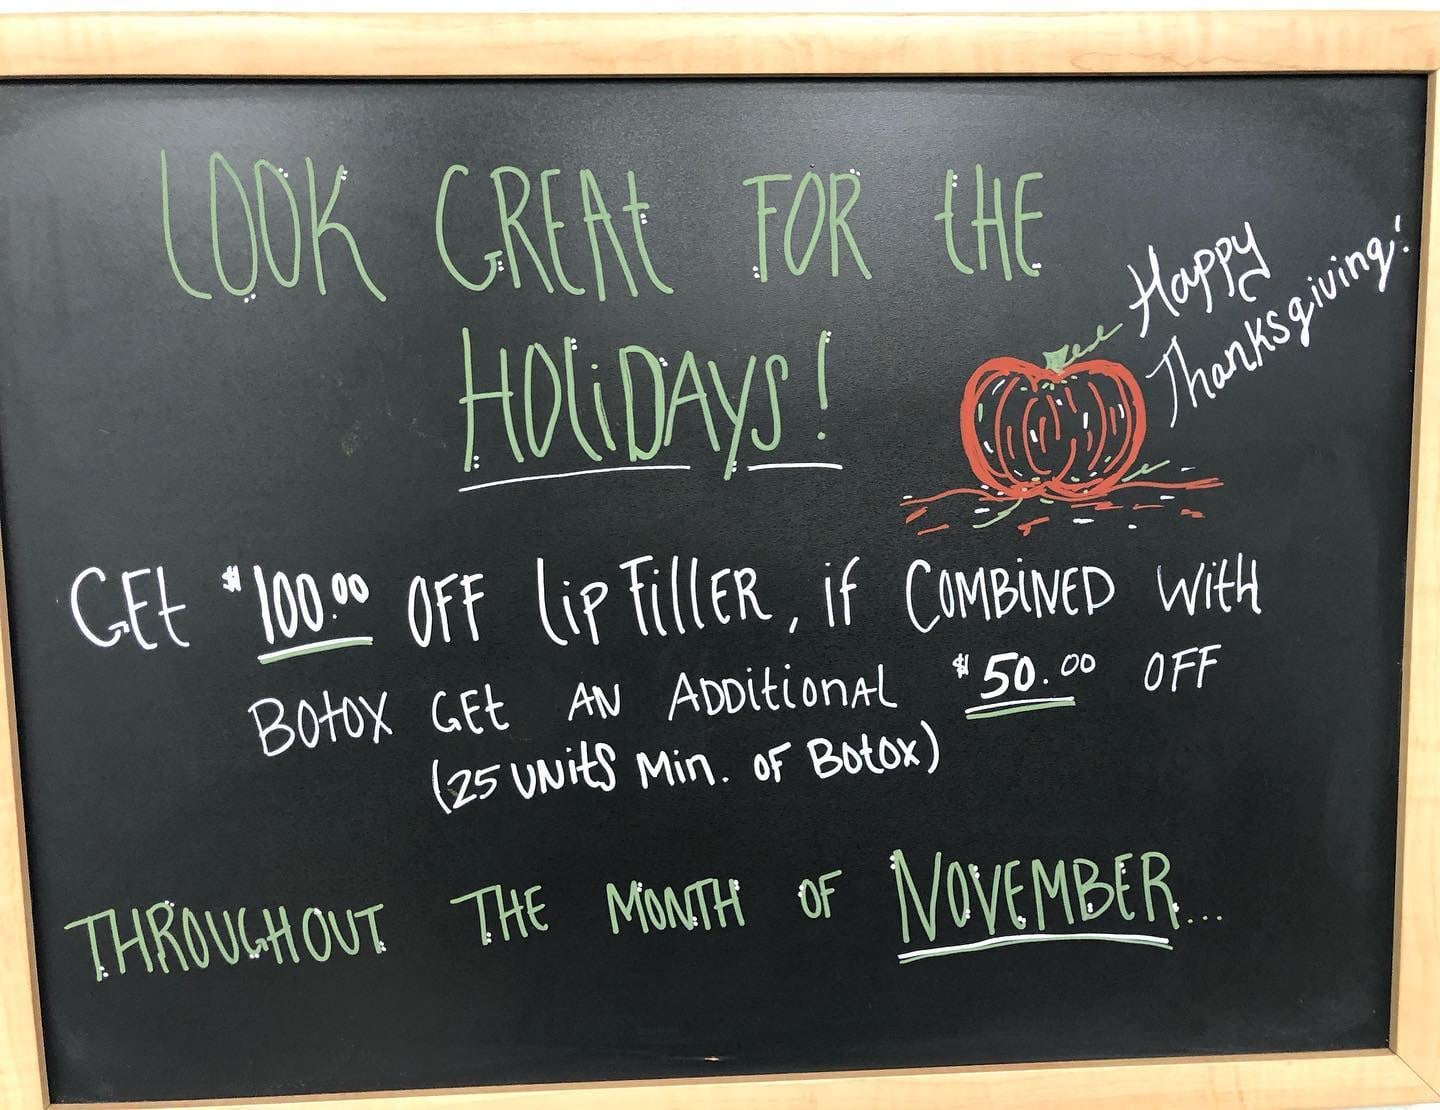 LOOK GREAT FOR THE
HOLIDAYS!
Happy
Thanksgiving!
GET $100.00 OFF Lip Filler, if COMBINED WITH
BOTOX GET AN ADDITIONAL $50.00 OFF
(25 UNITS MIN. OF BOTOX)
THROUGHOUT THE MONTH OF NOVEMBER...